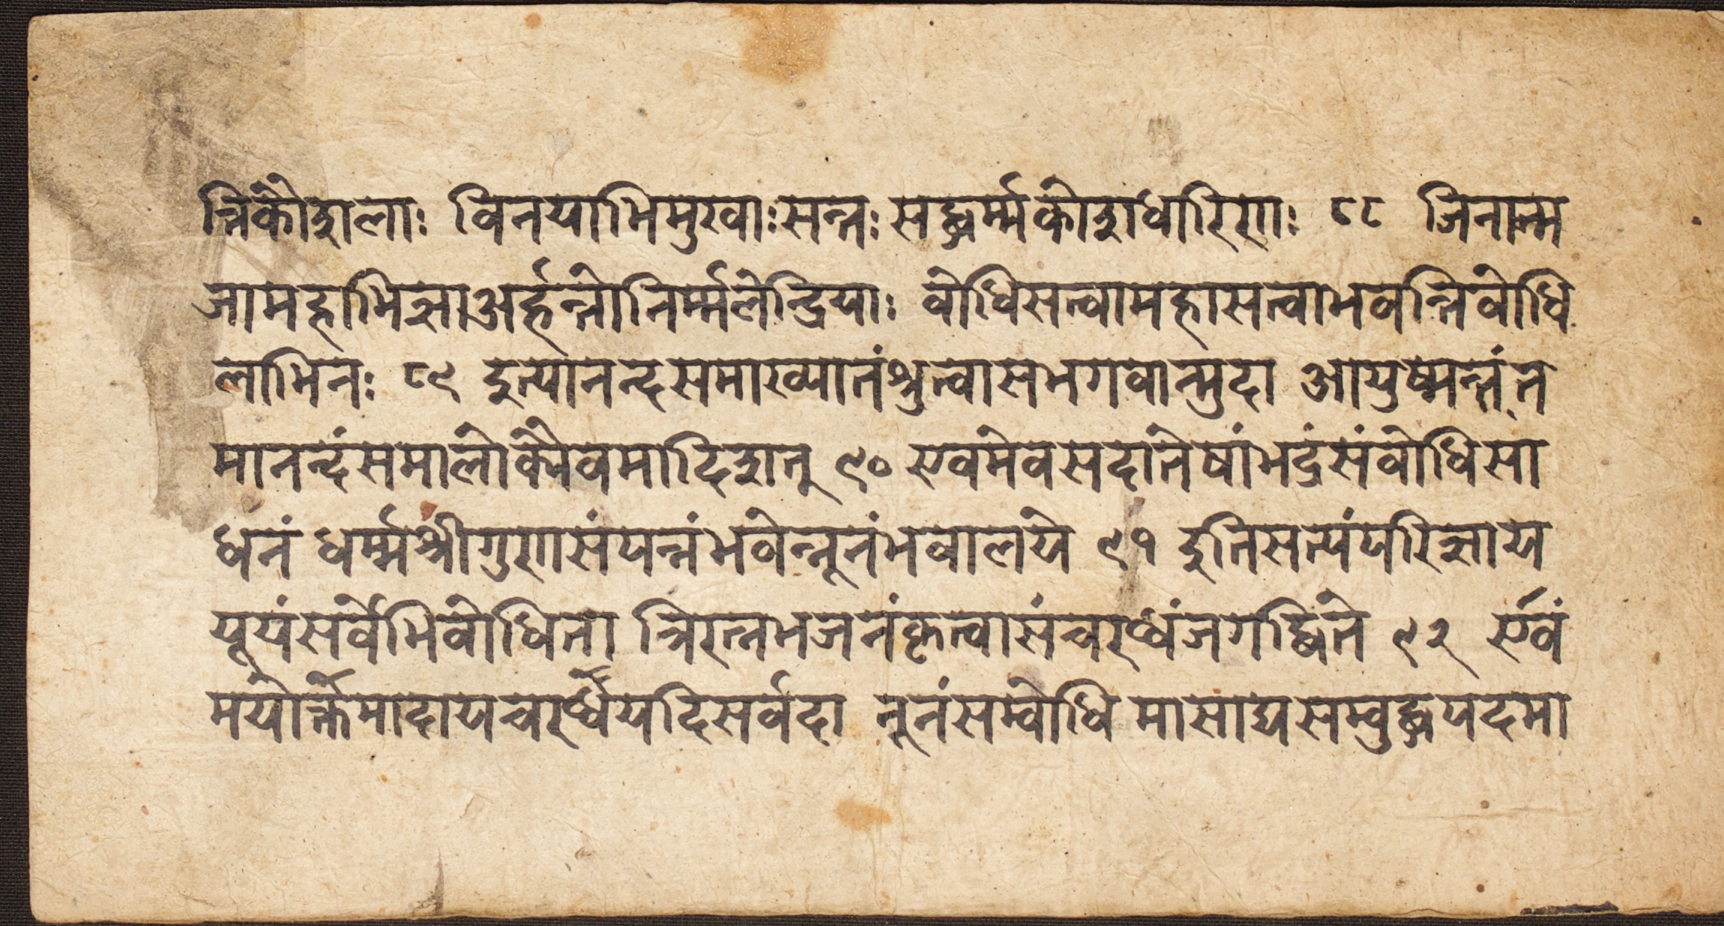 न्तिकौशलाः विनयाभिमुखाःसन्तः सद्धर्म्मकोशधारिणः ८८ जिनात्म
जामहाभिज्ञाअर्हन्तोनिर्म्मलेन्द्रियाः वोधिसत्वामहासत्वाभवन्तिवोधि
लाभिनः ८९ इत्यानन्दसमाख्यातंश्रुत्वासभगवान्मुदा आयुष्मन्तंत
मानन्दंसमालोक्यैवमादिशत् ९० एवमेवसदातेषांभद्रंसंवोधिसा
धनं धर्म्मश्रीगुणसंपन्नंभवेन्नूनंभवालये ९१ इतिसत्यंपरिज्ञाय
यूयंसर्वेभिवोधिता त्रिरत्नभजनंकृत्वासंचरध्वंजगद्धिते ९२ एवं
मयोक्तमादायचरध्वेयदिसर्वदा नूनंसम्वोधि मासाद्यसम्वुद्धपदमा